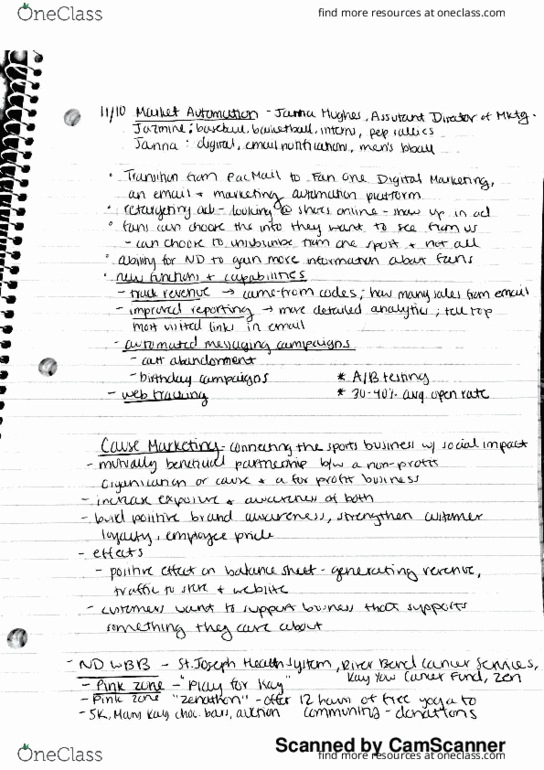 OneClass
find more resources at oneclass.com
11/10 Market Automation - Janna Hughes, Assistant Director of Mktg.
Jazmine: baseball, basketball, interns, pep rallies
Janna: digital, email notifications, men's bball
• Transition from PacMail to Fan One Digital Marketing,
an email + marketing automation platform
• retargeting ads - looking @ shoes online - show up in ad
• fans can choose the info they want to see from us
- can choose to unsubscribe from one sport + not all
• allowing for ND to gain more information about fans
• new functions + capabilities
- track revenue → came-from codes; how many sales from email
- improved reporting → more detailed analytics; tell top
most visited links in email
- automated messaging campaigns
- cart abandonment
- birthday campaigns * A/B testing
- web tracking * 30-40% avg. open rate
Cause Marketing - connecting the sports business w/ social impact
- mutually beneficial partnership b/w a non-profit
organization or cause + a for profit business
- increase exposure + awareness of both
- build positive brand awareness, strengthen customer
loyalty, employee pride
- effects
- positive effect on balance sheet - generating revenue,
traffic to store + website
- customers want to support business that supports
something they care about
- ND WBB - St. Joseph Health System, River Bend Cancer Services,
Kay Yow Cancer Fund, Zen
- Pink Zone - "Play for Kay"
- Pink Zone "Zenathon" - offer 12 hours of free yoga to
- 5K, Mary Kay, choc. bars, auction donations
OneClass
Scanned by CamScanner
find more resources at oneclass.com